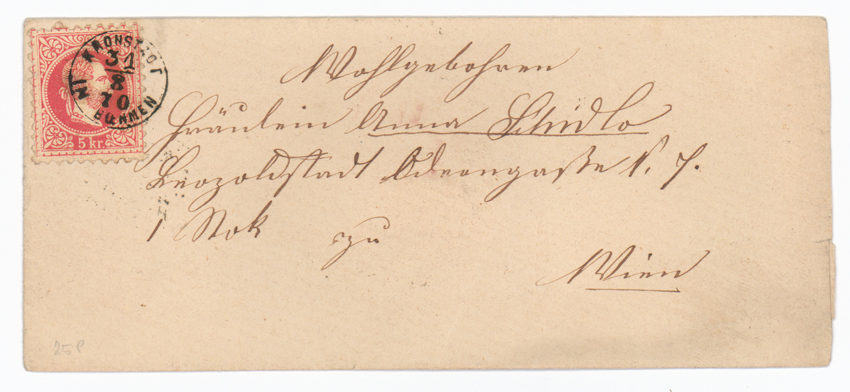 KRONSTADT
31
8
70
BÖHMEN
5 kr.
Wohlgebohren
Fräulein Anna Schidlo
Leopoldstadt Odeongaße N. 7.
1 Stok zu
Wien